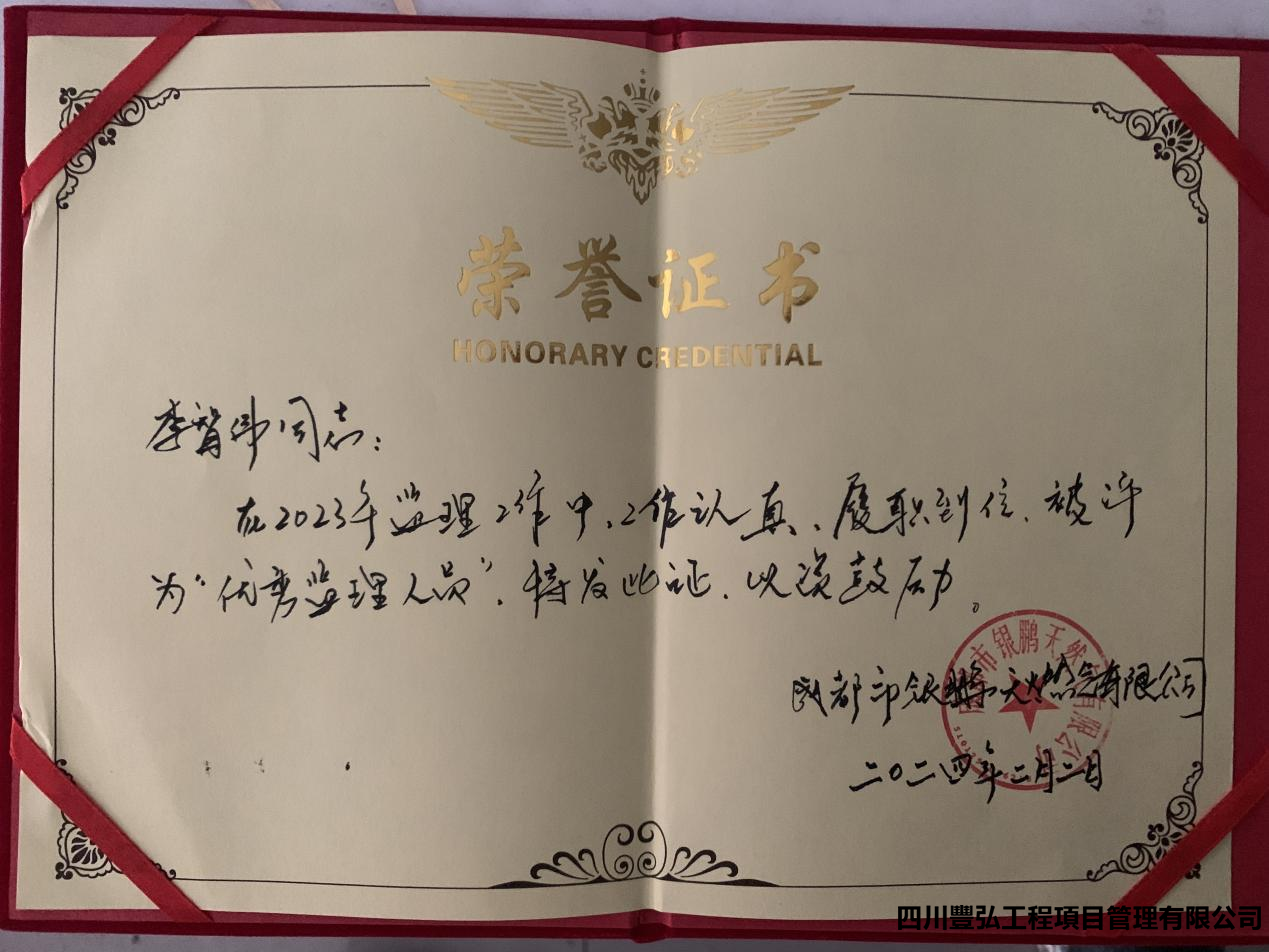 荣誉证书
HONORARY CREDENTIAL
李智伟同志:
在2023年监理工作中、工作认真、履职到位、被评
为“优秀监理人员”、特发此证、以资鼓励。
成都市银鹏天然气有限公司
二〇二四年二月二日
四川豐弘工程項目管理有限公司